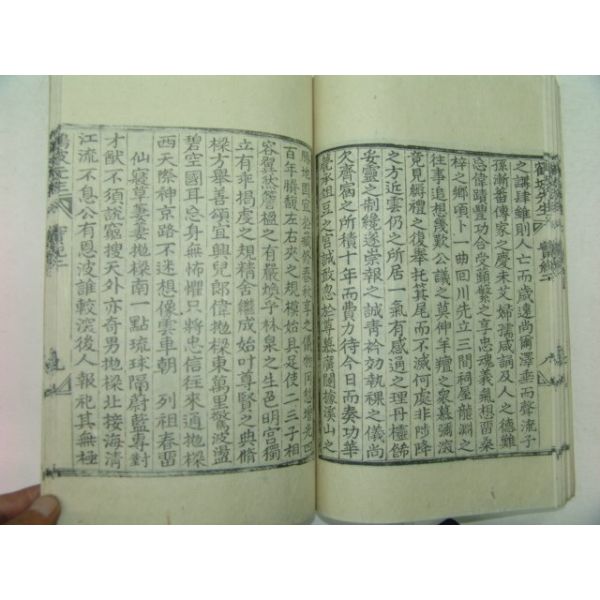 之講肄雖則人亡而歲遠尚爾澤垂而聲流子
孫漸蕃傳家之慶未艾婦孺咸誦及人之德難
忘偉蹟豐功合受蘋蘩之享忠魂義氣想留桑
梓之鄉頃卜一曲回川先立三間祠屋龍淵之
往事追想幾歎公議之莫伸羊羶之衆慕彌深
竟見縟禮之復舉托箕尾而不滅何處非陟降
之方近雲仍之所居一氣有感通之理丹楹
妥靈之制纔遂崇報之誠靑衿執祼之儀尚
欠齋宿之所積十年而費力待今日而奏功華
之宮誠故忽於尊慕廣闊據溪山之
百年臍馥左右夾之規模始具足使二三子相
容翼然簷楹之有嚴煥乎林泉之生色明宮獨
立有乖揭虔之規精舍繼成始叶尊賢之典脩
樑方舉善頌宜興兒郞偉抛樑東萬里驚波盪
碧空國耳忘身無怖懼只將忠信往來通抛樑
西天際神京路不迷想像雲車朝 列祖春留
仙寢草萋萋抛樑南一點琉球隔蔚藍專對
才猷不須說窮搜天外亦奇男抛樑北接海清
江流不息公有恩波誰較深後人報祀其無極